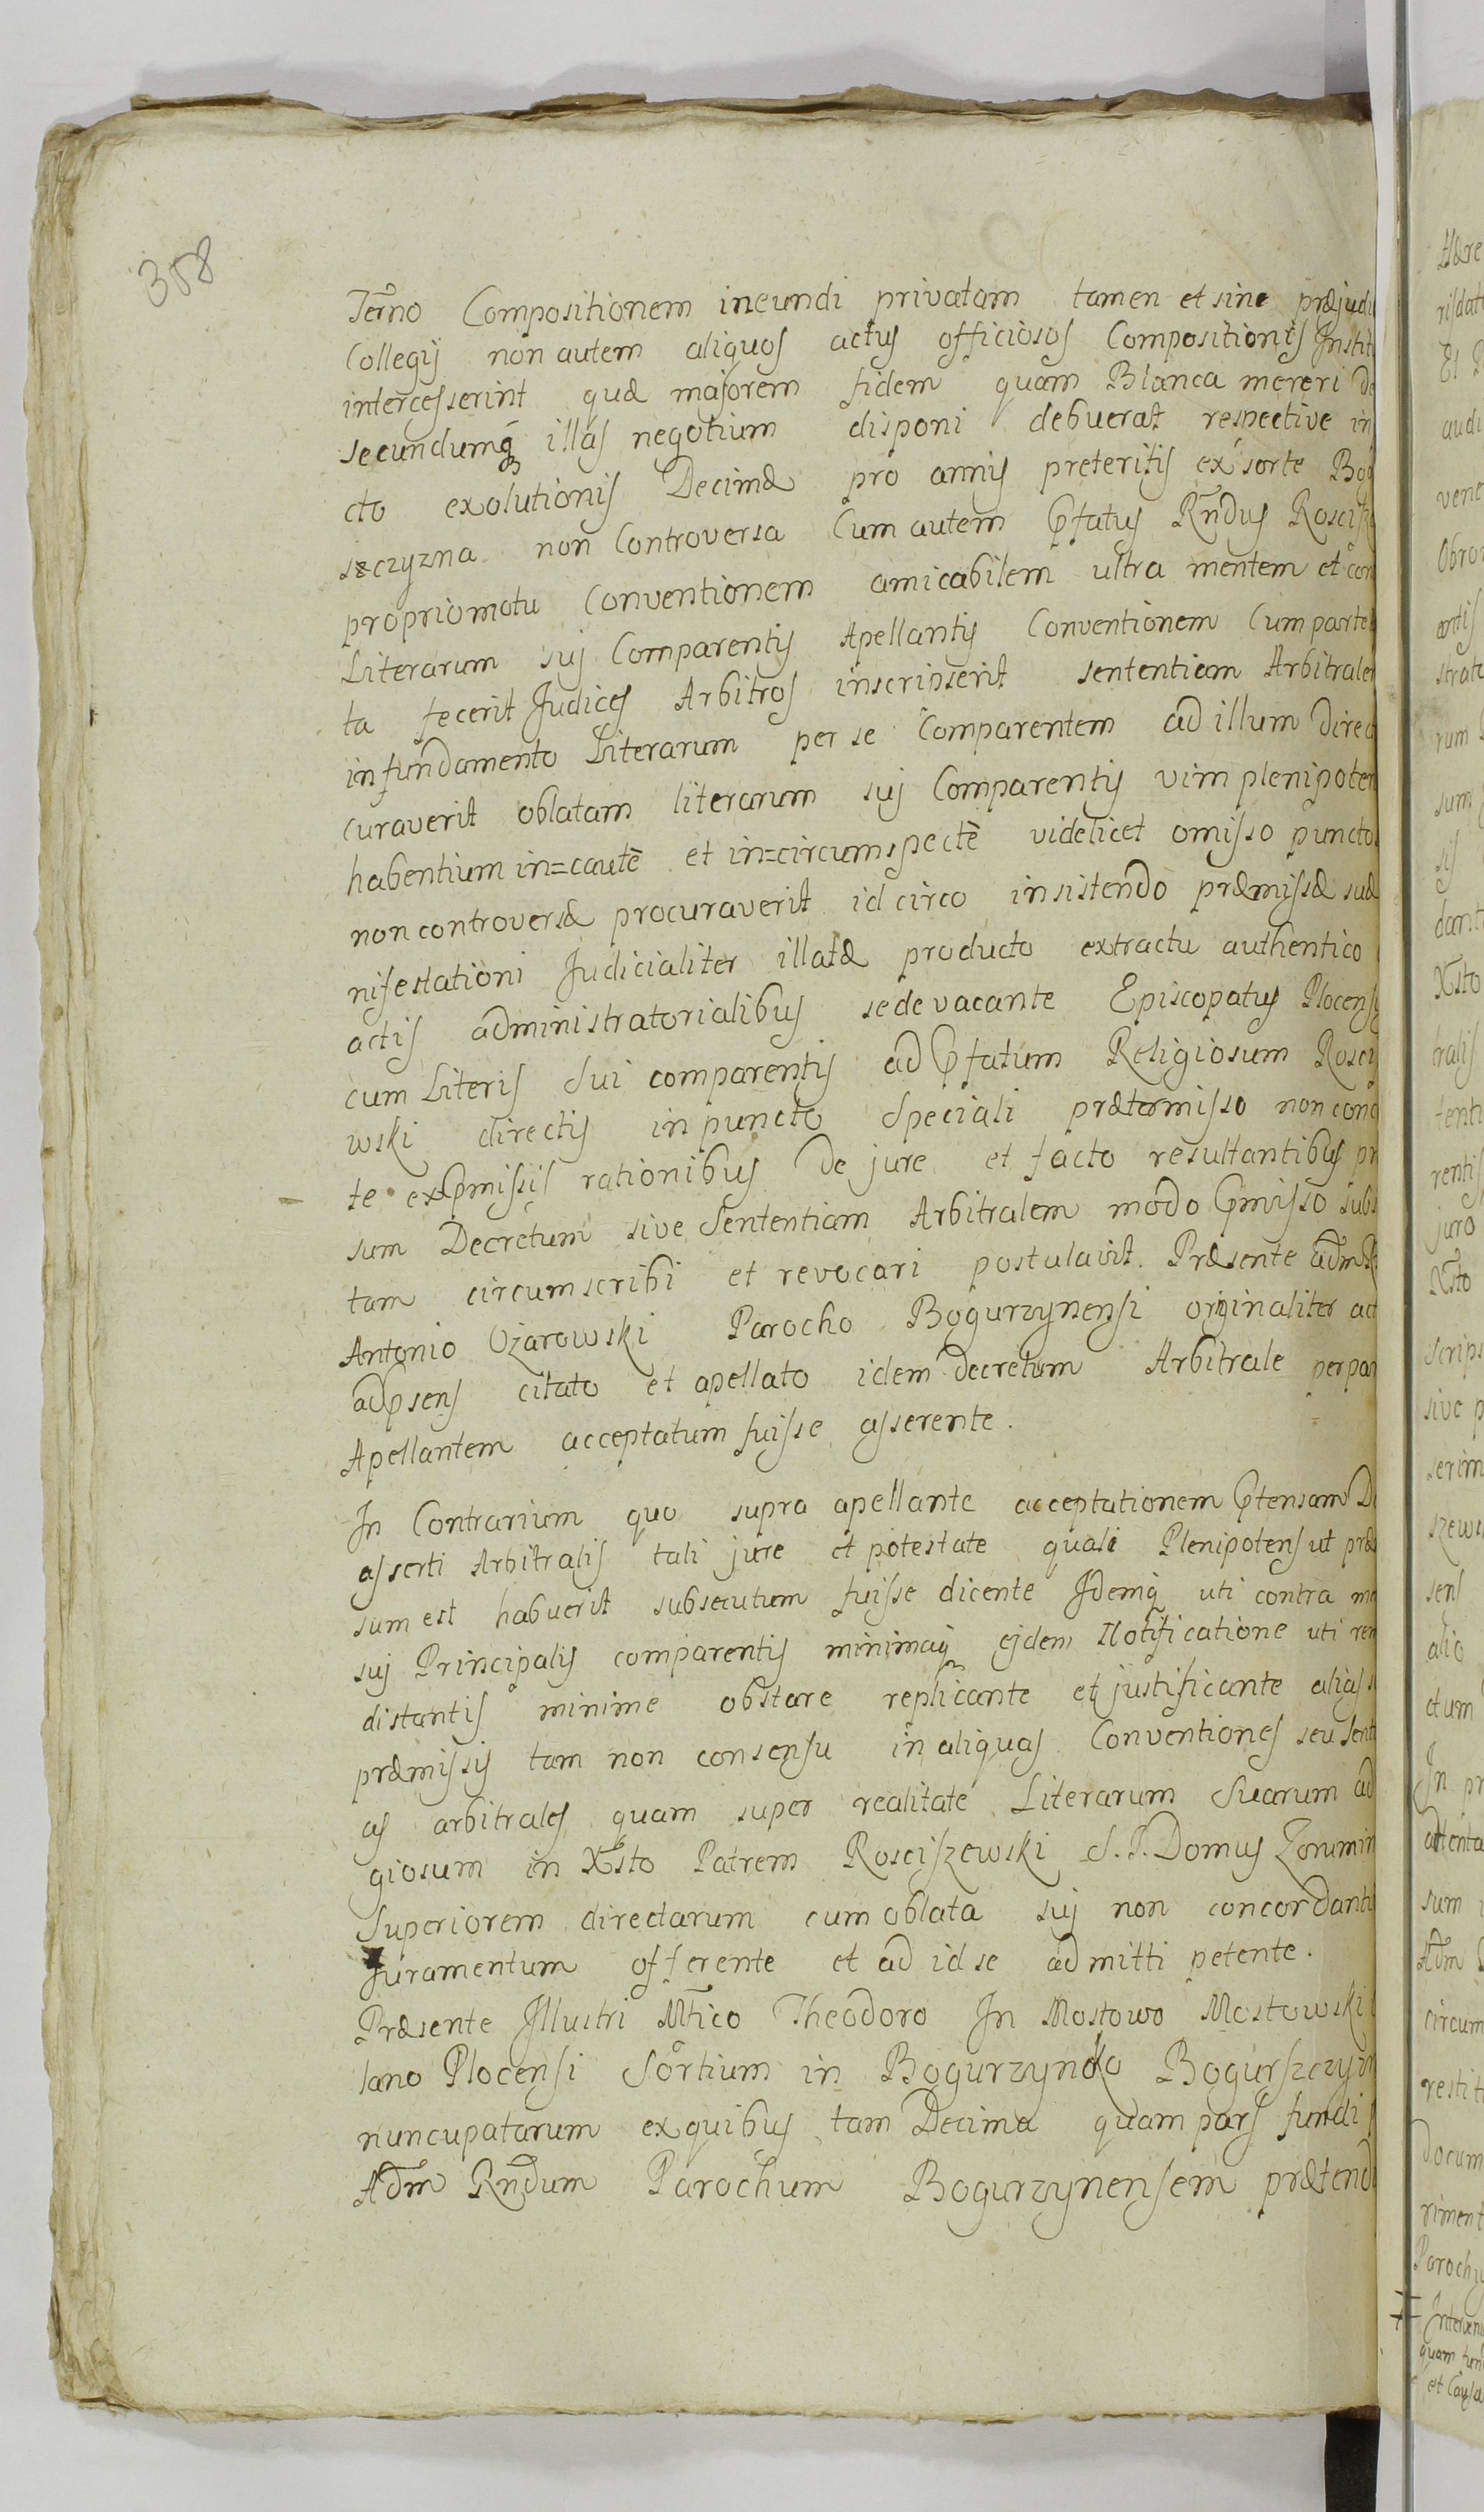 308
Terno Compositionem ineundi privatam tamen et sine præjudi
Collegij non autem aliquos actus officiosos Compositionis Instit
intercesserint quæ majorem fidem quam Blanca mereri de
secundumq illas negotium disponi debuerat respective in
cto exolutionis Decimæ pro annis preteritis ex sorte Bog
szczyzna non Controversa Cum autem Pfatus Rndus Roscisz
propriomotu Conventionem amicabilem ultra mentem et con
Literarum sui Comparentis Apellantis Conventionem Cum parte
ta fecerit Judices Arbitros inscripserit sententiam Arbitrale
in fundamento Literarum per se Comparentem ad illum direc
curaverit oblatam literarum sui Comparentis vim plenipoten
habentium in=cautè et in=circumspectè videlicet omisso puncto
non controversæ procuraverit id circo insistendo præmissæ suæ
nifestationi Judicialiter illatæ producto extractu authentico
actis administratorialibus sede vacante Episcopatus Plocens
cum Literis Sui comparentis ad Pfatum Religiosum Rosci
wski directis in puncto Speciali prætermisso non conc
te ex Pmissis rationibus de jure et facto resultantibus pr
sum Decretum sive Sententiam Arbitralem modo Pmisso subs
tam circumscribi et revocari postulavit. Præsente Adm R
Antonio Ożarowski Parocho Bogurzynensi originaliter act
ad psens citato et apellato idem decretum Arbitrale per par
Apellantem acceptatum fuisse asserente.
In Contrarium quo supra apellante acceptationem Ptensam De
asserti Arbitralis tali jure et potestate quali Plenipotens ut præ
sum est habuerit subsecutum fuisse dicente Idemq uti contra m
sui Principalis comparentis minimaq ejdem Notificatione uti rem
distantis minime obstare replicante et justificante alias s
præmissis tam non consensu in aliquas Conventiones seu sent
as arbitrales quam super realitate Literarum Suarum ad
giosum in Xsto Patrem Rosciszewski S. J. Domus Zoromin
Superiorem directarum cum oblata sui non concordanti
Juramentum offerente et ad id se admitti petente.
Præsente Illustri Mfico Theodoro In Mostowo Mostowski
lano Plocensi Sortium in Bogurzynko Bogurszczyzn
nuncupatarum ex quibus tam Decima quam pars fundi
Adm Rndum Parochum Bogurzynensem prætend